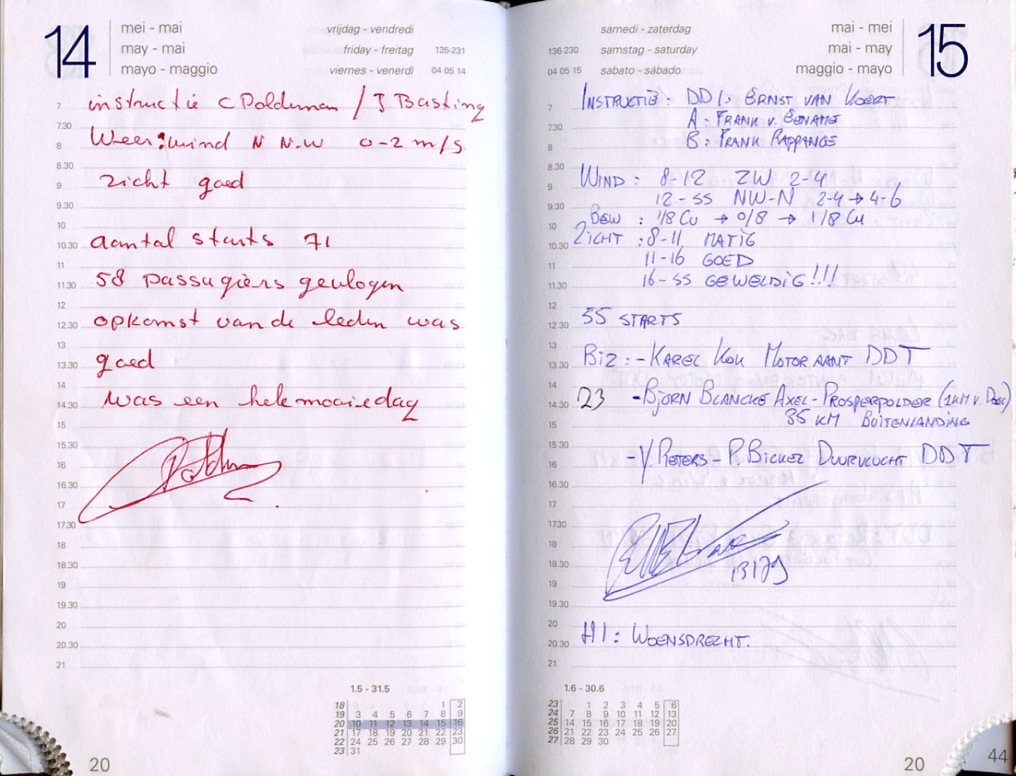 14
mei - mai
may - mai
mayo - maggio
vrijdag - vendredi
friday - freitag 135-231
viernes - venerdi 04 05 14
instructie C Poldeman / J Basting
Weer: wind N N.W 0-2 m/s
zicht goed
aantal starts 71
58 passagiers gevlogen
opkomst van de leden was
goed
was een hele mooie dag
7
7.30
8
8.30
9
9.30
10
10.30
11
11.30
12
12.30
13
13.30
14
14.30
15
15.30
16
16.30
17
17.30
18
18.30
19
19.30
20
20.30
21
1.5 - 31.5
18 1 2
19 3 4 5 6 7 8 9
20 10 11 12 13 14 15 16
21 17 18 19 20 21 22 23
22 24 25 26 27 28 29 30
23 31
20
samedi - zaterdag
136-230 samstag - saturday
04 05 15 sabato - sábado
mei - mai
mai - may
maggio - mayo
15
INSTRUCTIE: DDI. ERNST VAN KOERT
A: FRANK V. EENAME
B: FRANK RAPPANGE
WIND: 8-12 ZW 2-4
12-SS NW-N 2-4 → 4-6
BEW: 1/8 Cu → 0/8 → 1/8 Cu
ZICHT: 8-11 MATIG
11-16 GOED
16-SS GEWELDIG!!!
55 STARTS
BIZ: - KAREL KOK MOTOR AANT DDT
23 - BJORN BLANCKE AXEL-PROSPERPOLDER (1KM V.
35 KM BUITENLANDING
- Y. PIETERS - P. BICKEL DUURVLUCHT DDT
HI: WOENSDRECHT.
7
7.30
8
8.30
9
9.30
10
10.30
11
11.30
12
12.30
13
13.30
14
14.30
15
15.30
16
16.30
17
17.30
18
18.30
19
19.30
20
20.30
21
1.6 - 30.6
23 1 2 3 4 5 6
24 7 8 9 10 11 12 13
25 14 15 16 17 18 19 20
26 21 22 23 24 25 26 27
27 28 29 30
20
44